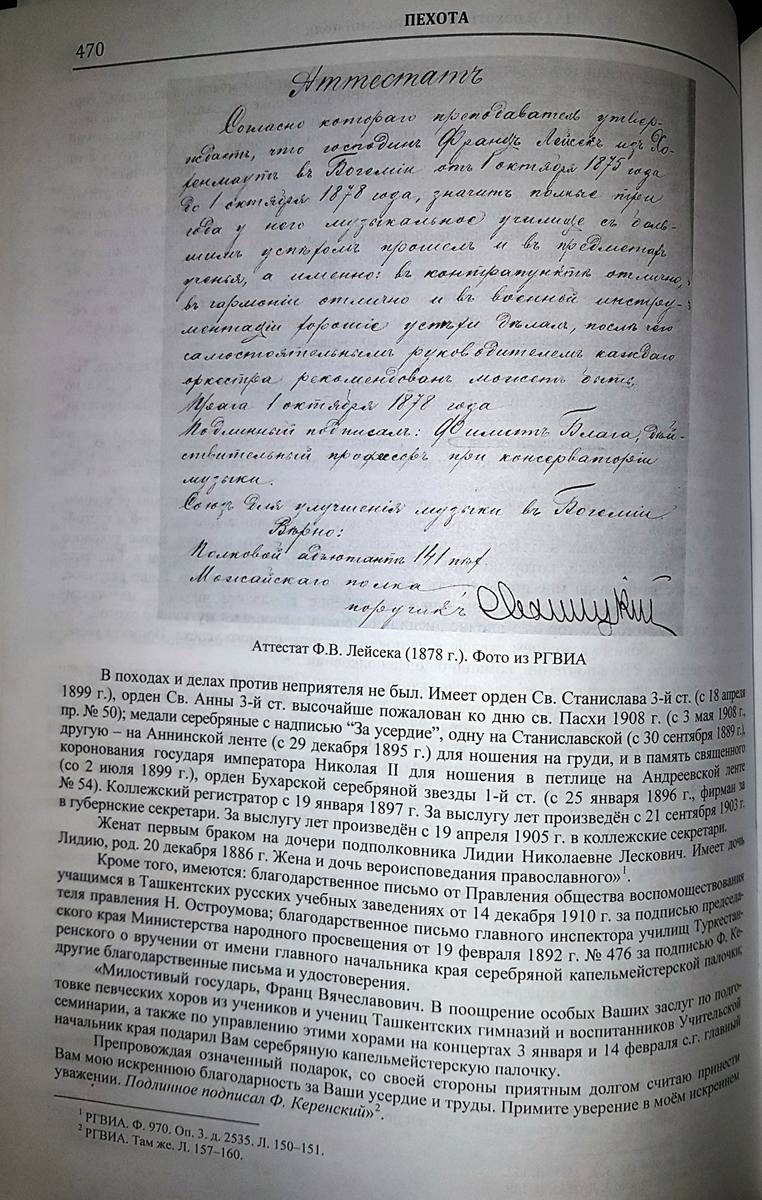 470
ПЕХОТА
Аттестатъ
Согласно котораго преподаватель утвер-
ждаетъ, что господинъ Францъ Лейсекъ изъ Хо-
ренмаутъ въ Богеміи отъ 1 октября 1875 года
до 1 октября 1878 года, значитъ полные три
года у него музыкальное училище съ боль-
шимъ успѣхомъ прошелъ и въ предметахъ
ученья, а именно: въ контрапунктѣ отлично,
въ гармоніи отлично и въ военной инстру-
ментаціи хорошіе успѣхи дѣлалъ, послѣ чего
самостоятельнымъ руководителемъ каждаго
оркестра рекомендованъ можетъ быть.
Прага 1 октября 1878 года
Подлинный подписалъ: Филиппъ Блага, дѣй-
ствительный професоръ при консерваторіи
музыки.
Союзъ для улучшенія музыки въ Богеміи.
Вѣрно:
Полковой адъютантъ 141 пѣх.
Можайскаго полка
поручикъ
Аттестат Ф.В. Лейсека (1878 г.). Фото из РГВИА
В походах и делах против неприятеля не был. Имеет орден Св. Станислава 3-й ст. (с 18 апреля
1899 г.), орден Св. Анны 3-й ст. высочайше пожалован ко дню св. Пасхи 1908 г. (с 3 мая 1908 г.,
пр. № 50); медали серебряные с надписью “За усердие”, одну на Станиславской (с 30 сентября 1889 г.),
другую – на Аннинской ленте (с 29 декабря 1895 г.) для ношения на груди, и в память священного
коронования государя императора Николая II для ношения в петлице на Андреевской ленте
(со 2 июля 1899 г.), орден Бухарской серебряной звезды 1-й ст. (с 25 января 1896 г., фирман за
№ 54). Коллежский регистратор с 19 января 1897 г. За выслугу лет произведён с 21 сентября 1903 г.
в губернские секретари. За выслугу лет произведён с 19 апреля 1905 г. в коллежские секретари.
Женат первым браком на дочери подполковника Лидии Николаевне Лескович. Имеет дочь
Лидию, род. 20 декабря 1886 г. Жена и дочь вероисповедания православного»¹.
Кроме того, имеются: благодарственное письмо от Правления общества воспомоществования
учащимся в Ташкентских русских учебных заведениях от 14 декабря 1910 г. за подписью председа-
теля правления Н. Остроумова; благодарственное письмо главного инспектора училищ Туркестан-
ского края Министерства народного просвещения от 19 февраля 1892 г. № 476 за подписью Ф. Ке-
ренского о вручении от имени главного начальника края серебряной капельмейстерской палочки;
другие благодарственные письма и удостоверения.
«Милостивый государь, Франц Вячеславович. В поощрение особых Ваших заслуг по подго-
товке певческих хоров из учеников и учениц Ташкентских гимназий и воспитанников Учительской
семинарии, а также по управлению этими хорами на концертах 3 января и 14 февраля с.г. главный
начальник края подарил Вам серебряную капельмейстерскую палочку.
Препровождая означенный подарок, со своей стороны приятным долгом считаю принести
Вам мою искреннюю благодарность за Ваши усердие и труды. Примите уверение в моём искреннем
уважении. Подлинное подписал Ф. Керенский»².
¹ РГВИА. Ф. 970. Оп. 3. д. 2535. Л. 150–151.
² РГВИА. Там же. Л. 157–160.